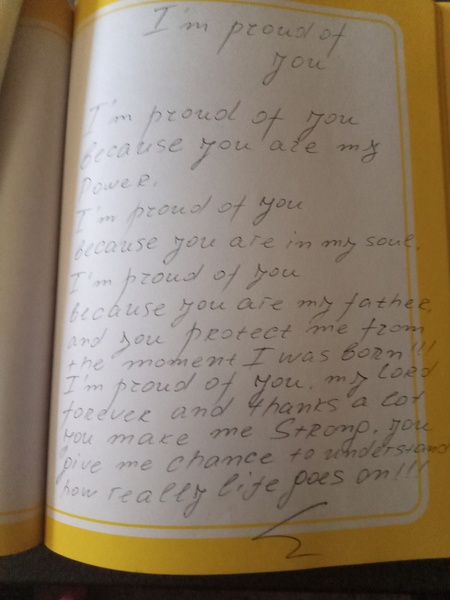 I'm proud of
you
I'm proud of you
because you are my
power.
I'm proud of you
because you are in my soul.
I'm proud of you
because you are my father,
and you protect me from
the moment I was born!!!
I'm proud of you. my lord
forever and thanks a lot
you make me strong. you
give me chance to understand
how really life goes on!!!